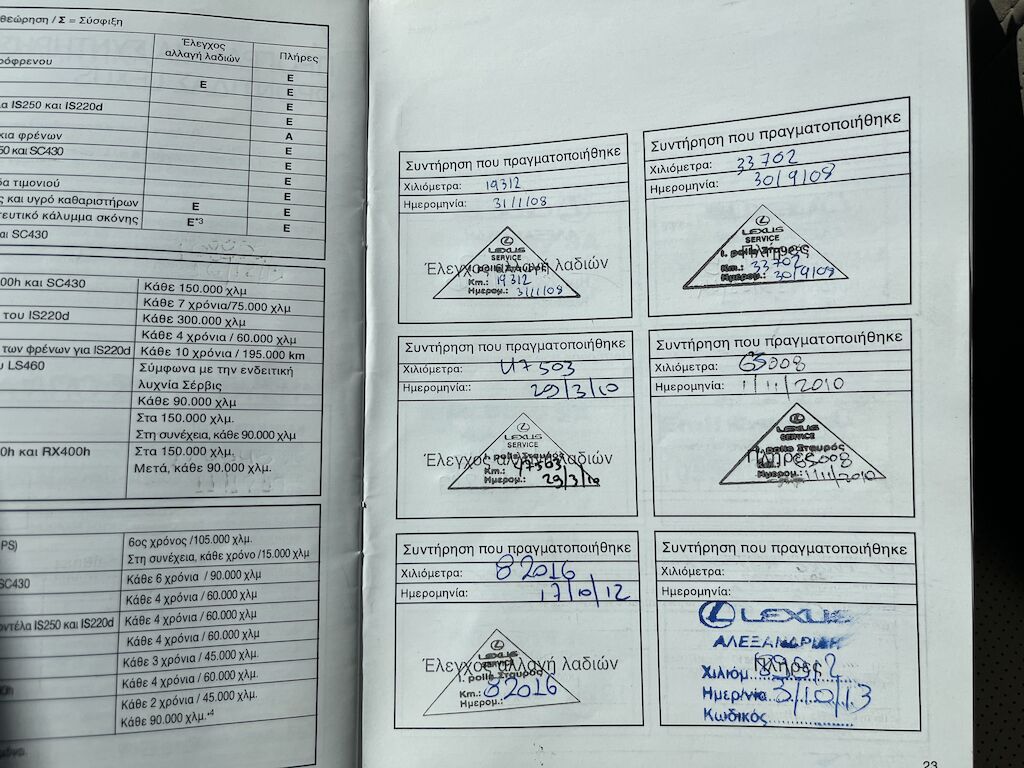 θεώρηση / Σ = Σύσφιξη
Έλεγχος
αλλαγή λαδιών
Πλήρες
Ε
Ε
Ε
Ε
α IS250 και IS220d
Ε
κια φρένων
Α
50 και SC430
Ε
Ε
δα τιμονιού
Ε
ς και υγρό καθαριστήρων
Ε
Ε
τευτικό κάλυμμα σκόνης
Ε*3
Ε
αι SC430
00h και SC430
Κάθε 150.000 χλμ
Κάθε 7 χρόνια/75.000 χλμ
του IS220d
Κάθε 300.000 χλμ
Κάθε 4 χρόνια / 60.000 χλμ
των φρένων για IS220d
Κάθε 10 χρόνια / 195.000 km
υ LS460
Σύμφωνα με την ενδειτική
λυχνία Σέρβις
Κάθε 90.000 χλμ
Στα 150.000 χλμ.
Στη συνέχεια, κάθε 90.000 χλμ
0h και RX400h
Στα 150.000 χλμ.
Μετά, κάθε 90.000 χλμ.
PS)
6ος χρόνος /105.000 χλμ.
Στη συνέχεια, κάθε χρόνο /15.000 χλμ
SC430
Κάθε 6 χρόνια / 90.000 χλμ
Κάθε 4 χρόνια / 60.000 χλμ.
Κάθε 4 χρόνια / 60.000 χλμ.
οντέλα IS250 και IS220d
Κάθε 4 χρόνια / 60.000 χλμ.
Κάθε 3 χρόνια / 45.000 χλμ.
Κάθε 4 χρόνια / 60.000 χλμ.
Κάθε 2 χρόνια / 45.000 χλμ.
Κάθε 90.000 χλμ.*4
Συντήρηση που πραγματοποιήθηκε
Χιλιόμετρα: 19312
Ημερομηνία: 31/1/08
LEXUS
SERVICE
Ι. ροlls Σταυρός
Έλεγχος αλλαγή λαδιών
Km.: 19312
Ημερομ.: 31/1/08
Συντήρηση που πραγματοποιήθηκε
Χιλιόμετρα: 33702
Ημερομηνία: 30/9/08
LEXUS
SERVICE
Πλήρες
Ι. ροlls Σταυρός
Km.: 33702
Ημερομ.: 30/9/08
Συντήρηση που πραγματοποιήθηκε
Χιλιόμετρα: 47503
Ημερομηνία: 29/3/10
LEXUS
SERVICE
Έλεγχος αλλαγή λαδιών
Km.: 47503
Ημερομ.: 29/3/10
Συντήρηση που πραγματοποιήθηκε
Χιλιόμετρα: 65008
Ημερομηνία: 1/11/2010
LEXUS
SERVICE
Πλήρες
Km.: 65008
Ημερομ.: 1/11/2010
Συντήρηση που πραγματοποιήθηκε
Χιλιόμετρα: 82016
Ημερομηνία: 17/10/12
LEXUS
SERVICE
Έλεγχος αλλαγή λαδιών
Km.: 82016
Ημερομ.:
Συντήρηση που πραγματοποιήθηκε
Χιλιόμετρα:
Ημερομηνία:
LEXUS
Πλήρες
Χιλιομ
Ημερ/νια 3/10/13
Κωδικός
23